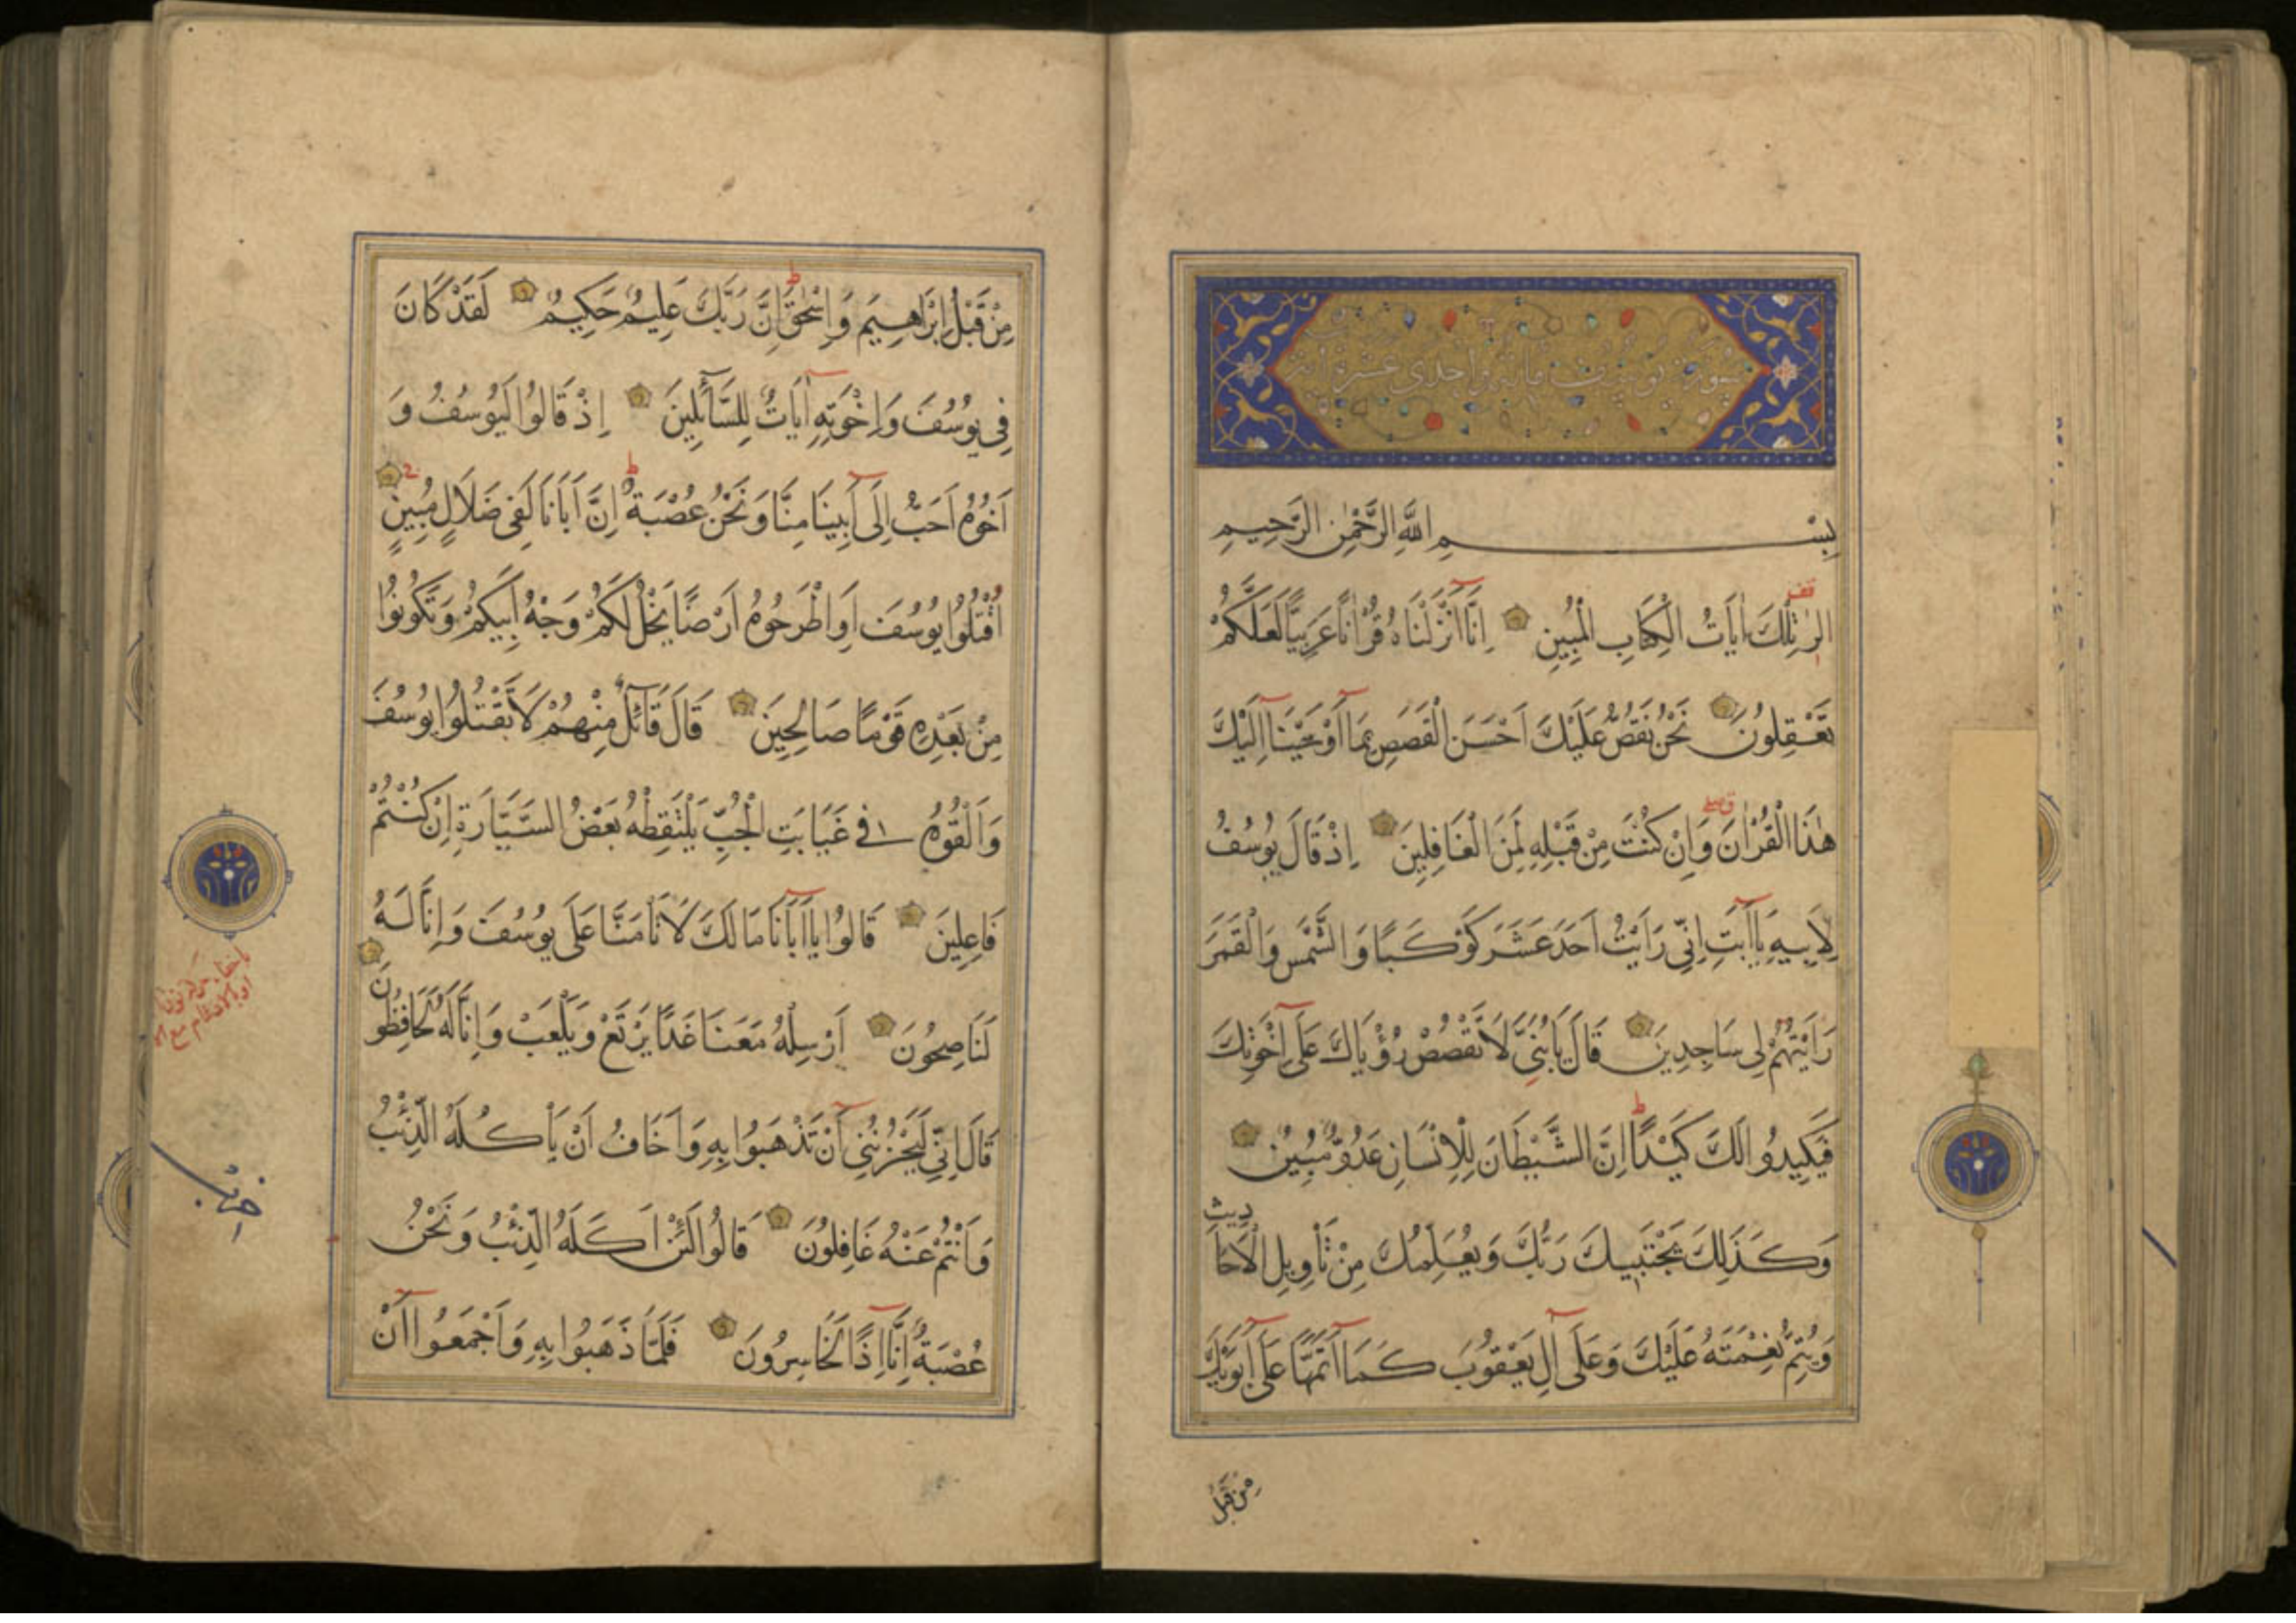 سورة يوسف مائة واحدى عشرة اية
بِسْمِ اللَّهِ الرَّحْمٰنِ الرَّحِيمِ
قف
الٓرٰ تِلْكَ اٰيَاتُ الْكِتَابِ الْمُبِينِ اِنَّآ اَنْزَلْنَاهُ قُرْاٰنًا عَرَبِيًّا لَعَلَّكُمْ
تَعْقِلُونَ نَحْنُ نَقُصُّ عَلَيْكَ اَحْسَنَ الْقَصَصِ بِمَآ اَوْحَيْنَآ اِلَيْكَ
هٰذَا الْقُرْاٰنَ وَاِنْ كُنْتَ مِنْ قَبْلِهِ لَمِنَ الْغَافِلِينَ اِذْ قَالَ يُوسُفُ
لِاَبِيهِ يَآ اَبَتِ اِنِّي رَاَيْتُ اَحَدَ عَشَرَ كَوْكَبًا وَالشَّمْسَ وَالْقَمَرَ
رَاَيْتُهُمْ لِي سَاجِدِينَ قَالَ يَا بُنَيَّ لَا تَقْصُصْ رُؤْيَاكَ عَلَىٓ اِخْوَتِكَ
فَيَكِيدُوا لَكَ كَيْدًا ط اِنَّ الشَّيْطَانَ لِلْاِنْسَانِ عَدُوٌّ مُبِينٌ
وَكَذَلِكَ يَجْتَبِيكَ رَبُّكَ وَيُعَلِّمُكَ مِنْ تَأْوِيلِ الْاَحَادِيثِ
وَيُتِمُّ نِعْمَتَهُ عَلَيْكَ وَعَلَىٓ آلِ يَعْقُوبَ كَمَآ اَتَمَّهَا عَلَىٓ اَبَوَيْكَ
مِنْ قَبْلُ
مِنْ قَبْلُ اِبْرَاهِيمَ وَاِسْحٰقَ ط اِنَّ رَبَّكَ عَلِيمٌ حَكِيمٌ لَقَدْ كَانَ
فِي يُوسُفَ وَاِخْوَتِهِٓ اٰيَاتٌ لِلسَّآئِلِينَ اِذْ قَالُوا لَيُوسُفُ وَ
اَخُوهُ اَحَبُّ اِلَىٓ اَبِينَا مِنَّا وَنَحْنُ عُصْبَةٌ ط اِنَّ اَبَانَا لَفِي ضَلَالٍ مُبِينٍ
اُقْتُلُوا يُوسُفَ اَوِ اطْرَحُوهُ اَرْضًا يَخْلُ لَكُمْ وَجْهُ اَبِيكُمْ وَتَكُونُوا
مِنْ بَعْدِهِ قَوْمًا صَالِحِينَ قَالَ قَآئِلٌ مِنْهُمْ لَا تَقْتُلُوا يُوسُفَ
وَاَلْقُوهُ فِي غَيَابَتِ الْجُبِّ يَلْتَقِطْهُ بَعْضُ السَّيَّارَةِ اِنْ كُنْتُمْ
فَاعِلِينَ قَالُوا يَآ اَبَانَا مَا لَكَ لَا تَأْمَنَّا عَلَى يُوسُفَ وَاِنَّا لَهُ
لَنَاصِحُونَ اَرْسِلْهُ مَعَنَا غَدًا يَرْتَعْ وَيَلْعَبْ وَاِنَّا لَهُ لَحَافِظُونَ
قَالَ اِنِّي لَيَحْزُنُنِيٓ اَنْ تَذْهَبُوا بِهِ وَاَخَافُ اَنْ يَأْكُلَهُ الذِّئْبُ
وَاَنْتُمْ عَنْهُ غَافِلُونَ قَالُوا لَئِنْ اَكَلَهُ الذِّئْبُ وَنَحْنُ
عُصْبَةٌ اِنَّآ اِذًا لَخَاسِرُونَ فَلَمَّا ذَهَبُوا بِهِ وَاَجْمَعُوٓا اَنْ
حزب